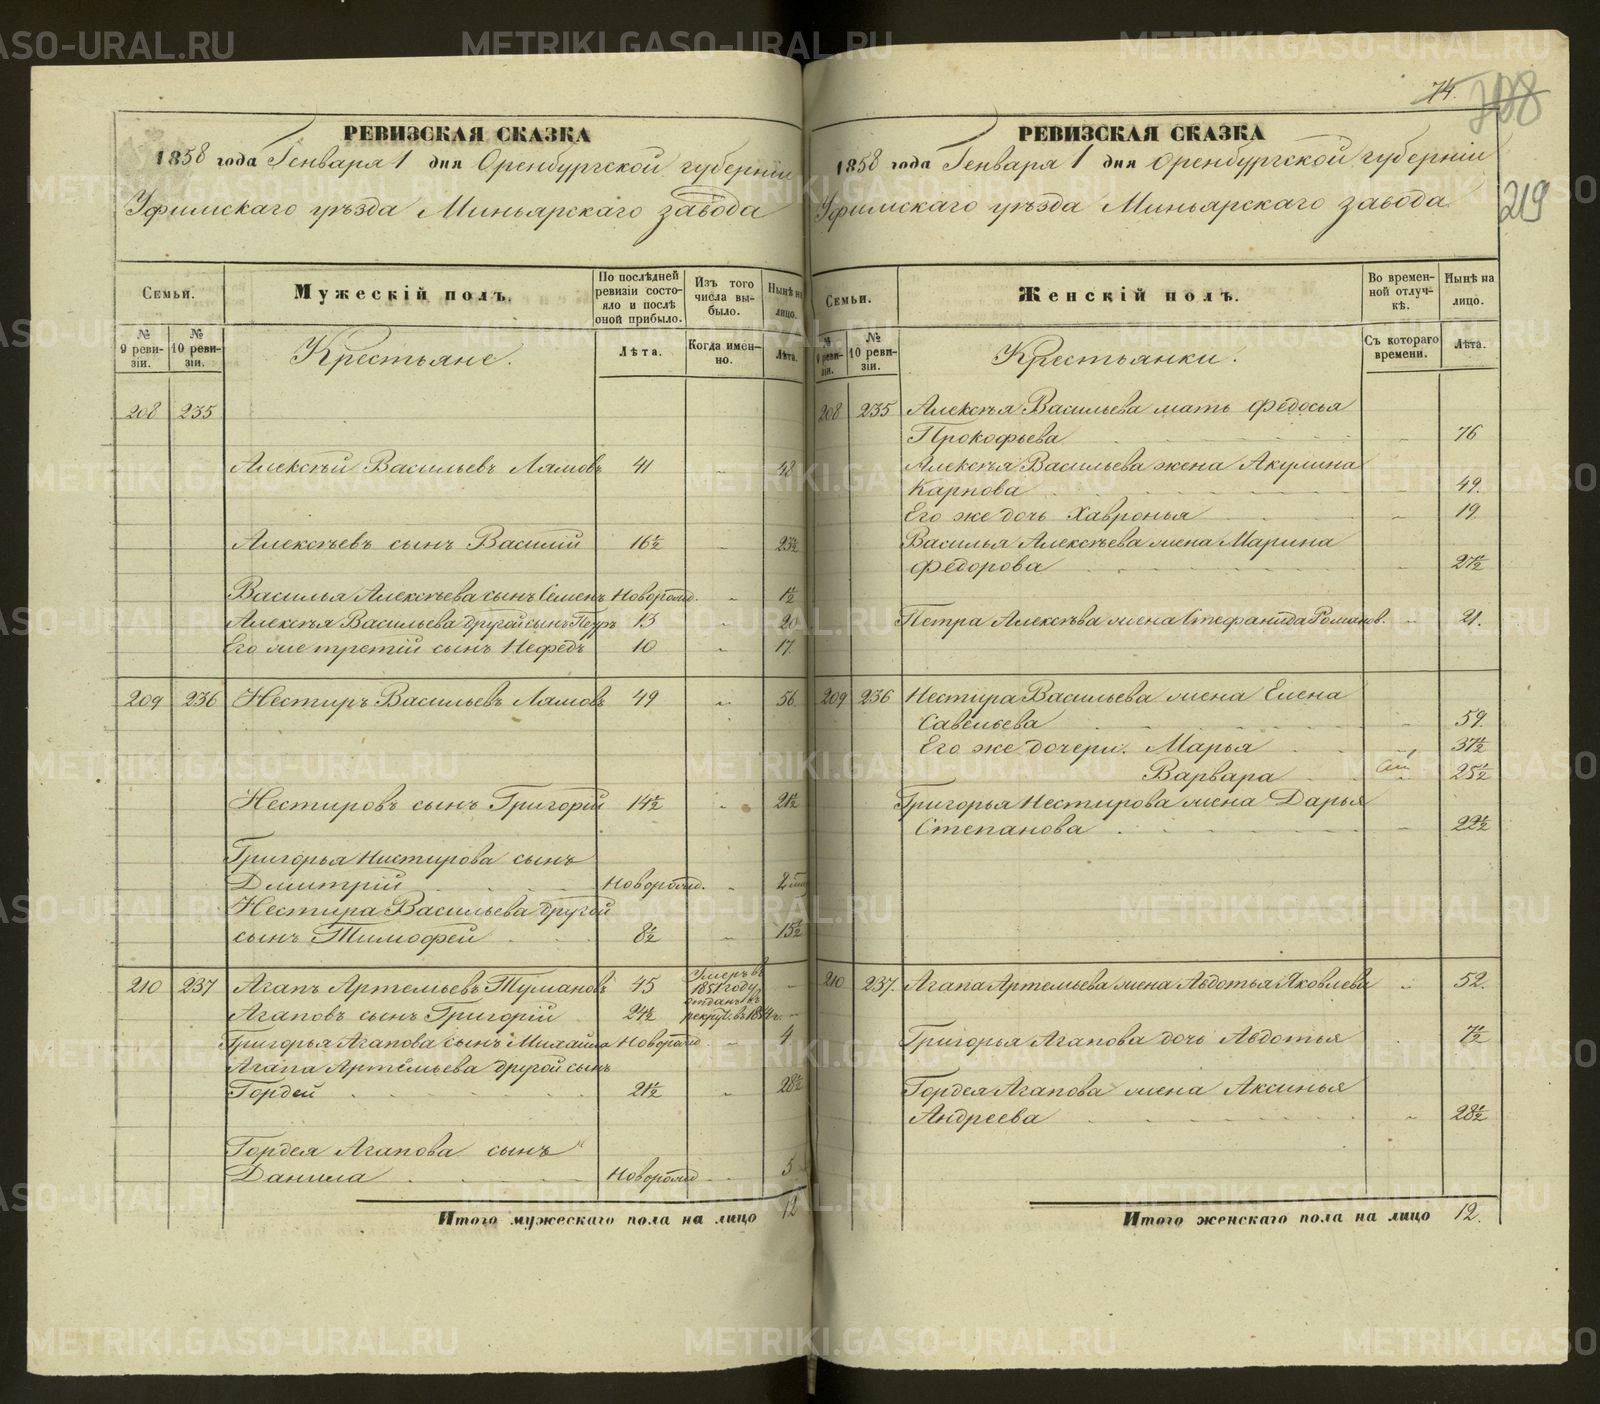 74.
219
РЕВИЗСКАЯ СКАЗКА
1858 года Генваря 1 дня Оренбургской губерніи
Уфимскаго уѣзда Миньярскаго завода
Семьи.
Мужескій полъ.
По послѣдней ревизіи состояло и послѣ оной прибыло.
Изъ того числа выбыло.
Нынѣ на лицо.
№ 9 ревизіи.
№ 10 ревизіи.
Крестьяне.
Лѣта.
Когда именно.
Лѣта.
208 235
Алексѣй Васильевъ Лямовъ 41 „ 48
Алексѣевъ сынъ Василій 16½ „ 23½
Василья Алексѣева сынъ Семенъ Новорожд. „ 1½
Алексѣя Васильева другой сынъ Петръ 13 „ 20
Его же третій сынъ Нефедъ 10 „ 17.
209 236 Нестиръ Васильевъ Лямовъ 49 „ 56.
Нестировъ сынъ Григорій 14½ „ 21½
Григорья Нистирова сынъ
Дмитрій Новорожд. „ 2
Нестира Васильева другой
сынъ Тимофей 8½ „ 15½
210 237 Агапъ Артемьевъ Тумановъ 45 Умеръ въ 1851 году „
Агаповъ сынъ Григорій 24½ отданъ въ рекрут. въ 1854 г. „
Григорья Агапова сынъ Михайла Новорожд „ 4
Агапа Артемьева другой сынъ
Гордей 21½ „ 28½
Гордея Агапова сынъ
Данила Новорожд 5
Итого мужескаго пола на лицо 12
РЕВИЗСКАЯ СКАЗКА
1858 года Генваря 1 дня Оренбургской губерніи
Уфимскаго уѣзда Миньярскаго завода
Семьи.
Женскій полъ.
Во временной отлучкѣ.
Нынѣ на лицо.
№ 9 ревизіи.
№ 10 ревизіи.
Крестьянки.
Съ котораго времени.
Лѣта.
208 235 Алексѣя Васильева мать Федосья
Прокофьева „ 76
Алексѣя Васильева жена Акулина
Карпова „ 49.
Его же дочь Хавронья „ 19.
Василья Алексѣева жена Марина
Федорова „ 27½
Петра Алексѣва жена Стефанида Романов. „ 21.
209 236 Нестира Васильева жена Елена
Савельева „ 59.
Его же дочери. Марья „ 37½
Варвара „ 25½
Григорья Нестирова жена Дарья
Степанова „ 22½
210 237. Агапа Артемьева жена Авдотья Яковлева „ 52.
Григорья Агапова дочь Авдотья 7½
Гордея Агапова жена Аксинья
Андреева „ 28½
Итого женскаго пола на лицо 12.
METRIKI.GASO-URAL.RU